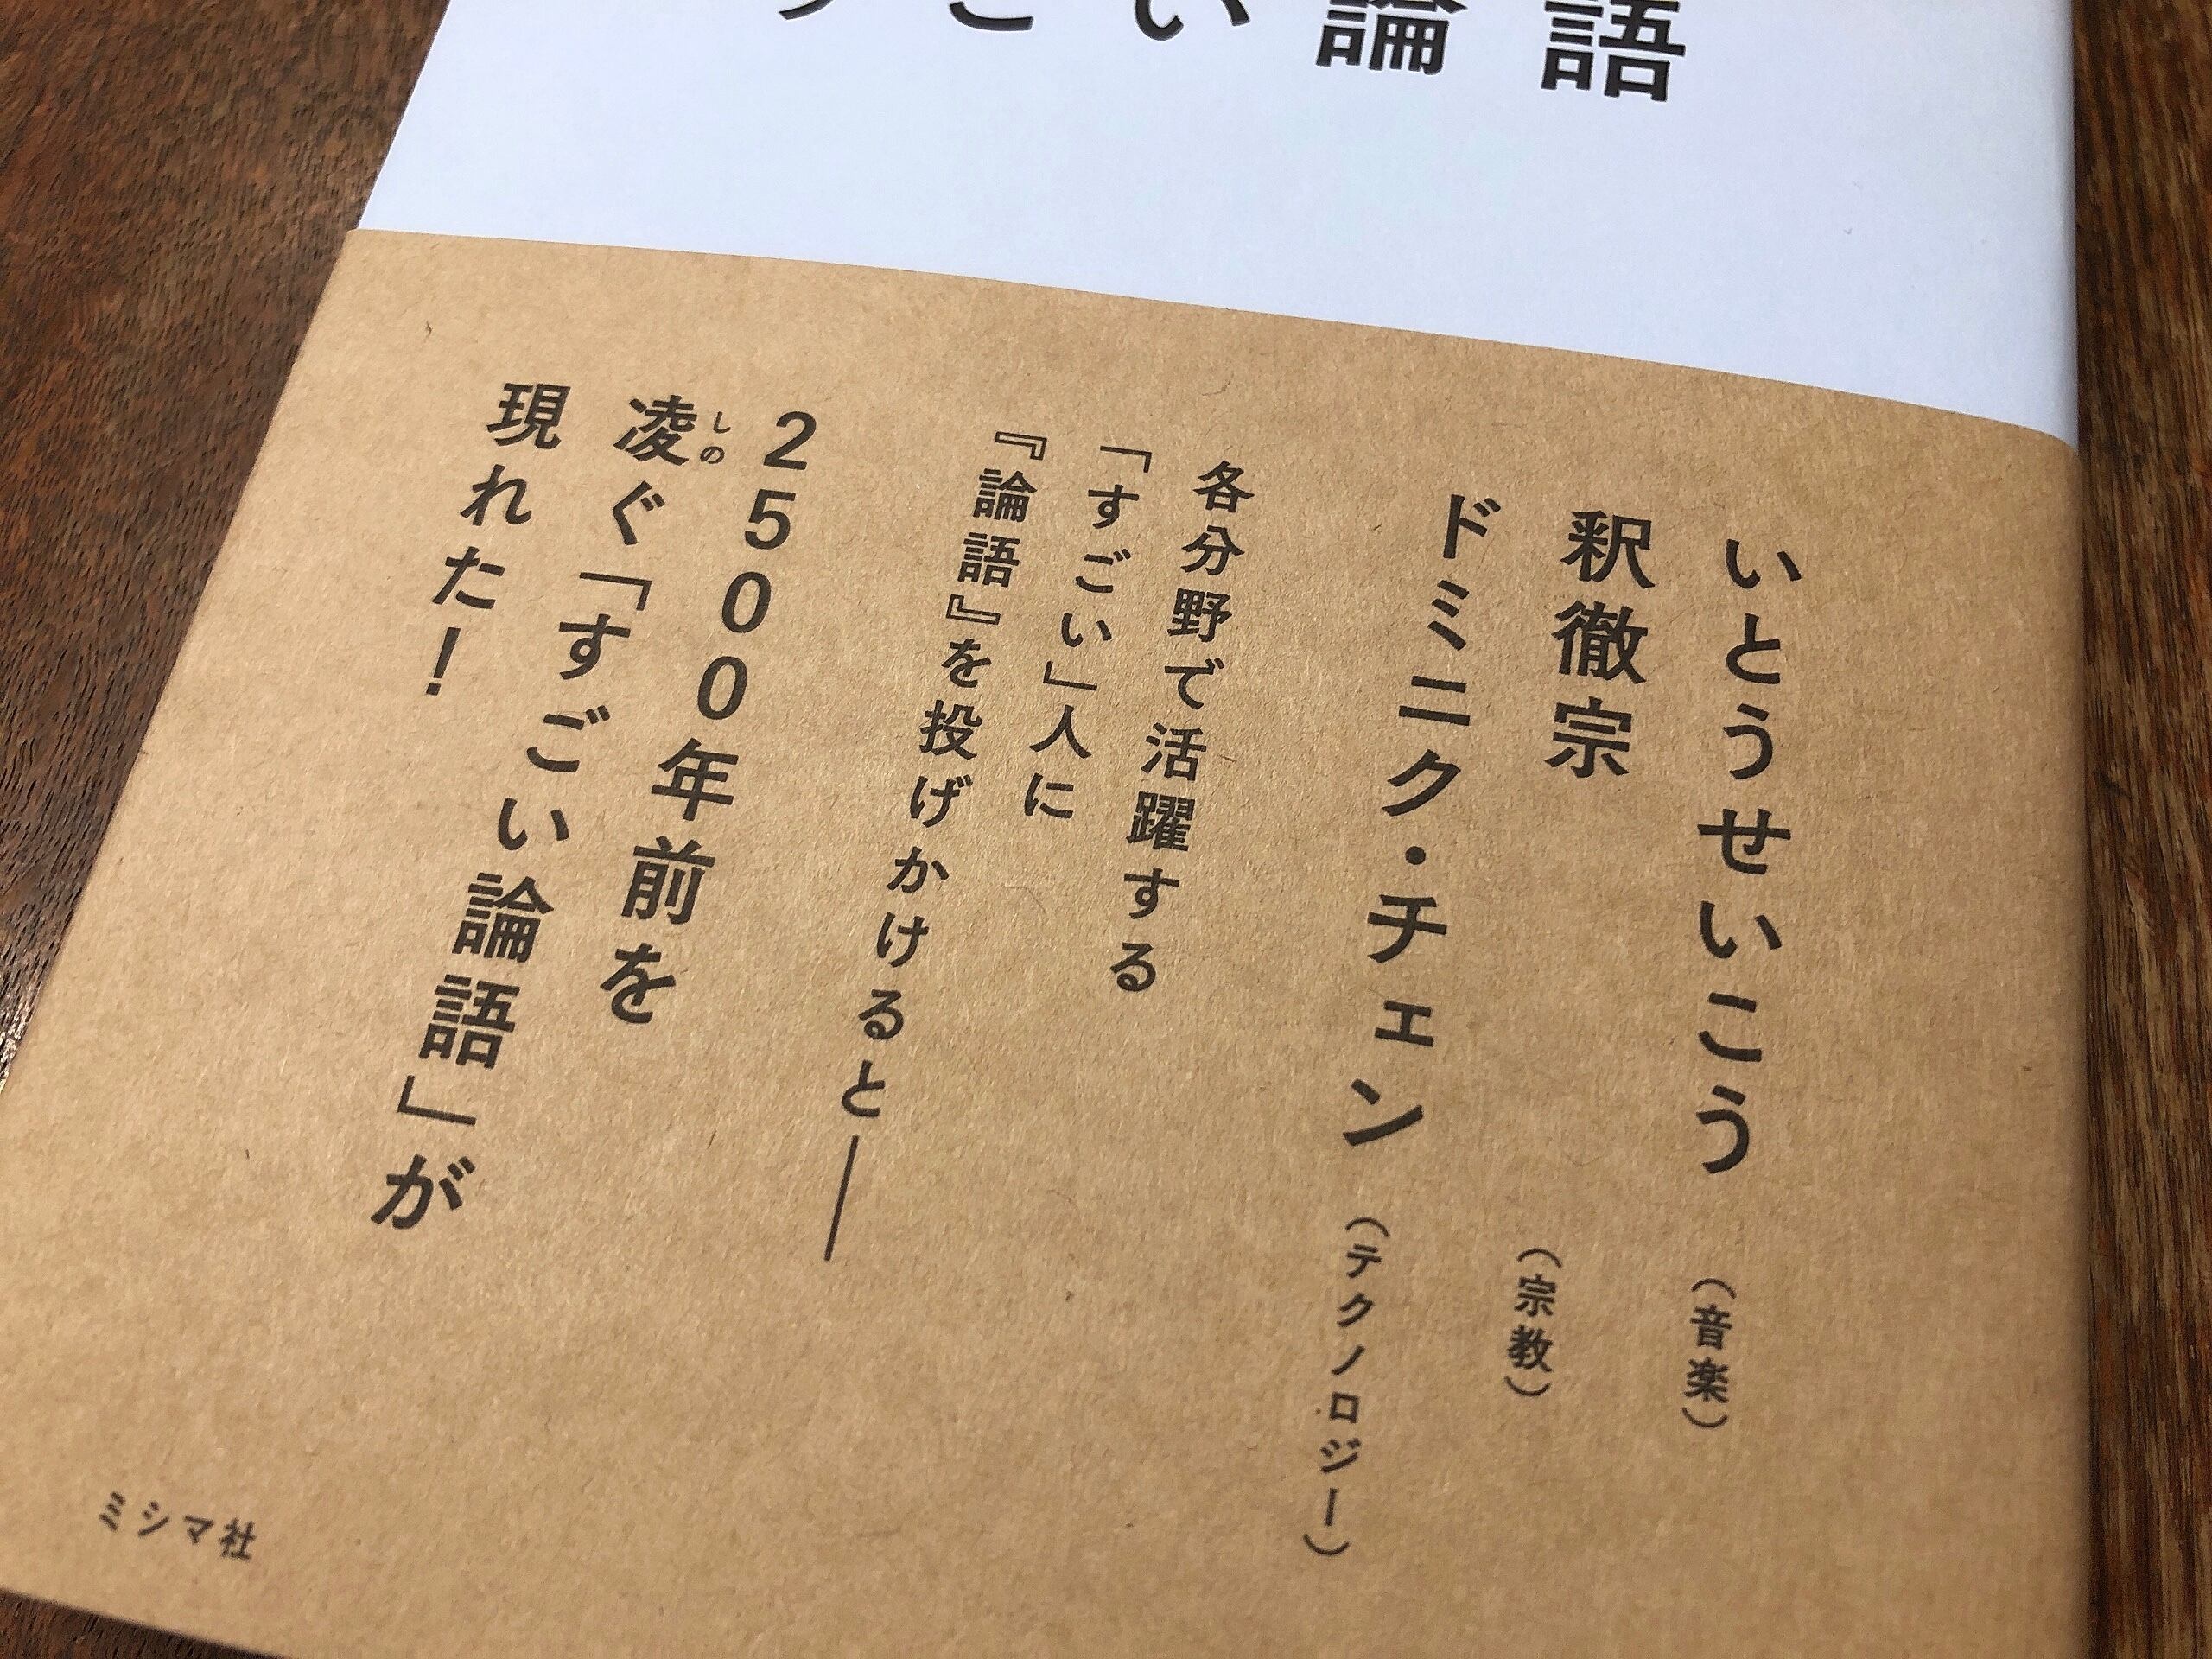 すごい論語
いとうせいこう（音楽）
釈徹宗（宗教）
ドミニク・チェン（テクノロジー）
各分野で活躍する
「すごい」人に
『論語』を投げかけると──
2500年前を
凌ぐ「すごい論語」が
しの
現れた！
ミシマ社